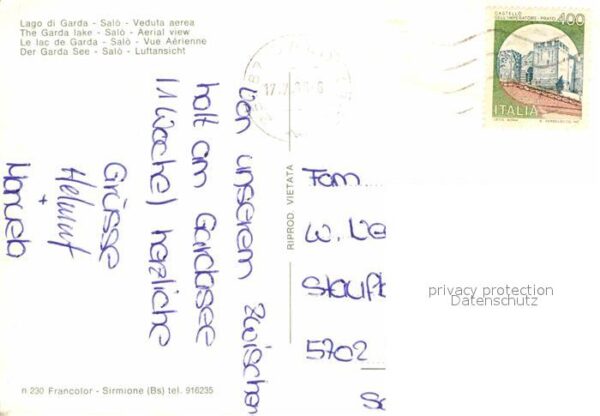 Lago di Garda - Salò - Veduta aerea
The Garda lake - Salò - Aerial view
Le lac de Garda - Salò - Vue Aérienne
Der Garda See - Salò - Luftansicht
CASTELLO
DELL'IMPERATORE - PRATO 400
ITALIA
Von unserem Zwischen
halt am Gardasee
(1 Woche) herzliche
Grüsse
Helmut
+
RIPROD. VIETATA
Fam.
W. Ve
Stauf
5702
privacy protection
Datenschutz
n 230 Francolor - Sirmione (Bs) tel. 916235